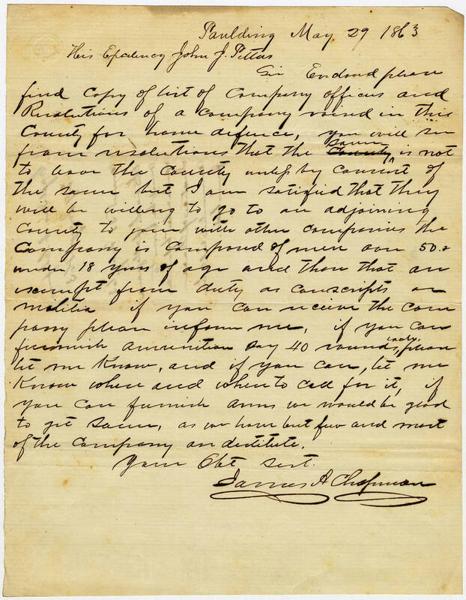 Paulding May 29 1863
His Exelency John J. Pettus
Sir Enclosed please
find Copy of List of Company officers and
Resolutions of a company raised in this
County for home defence, you will see
from resolutions that the same is not
to leave the County unless by consent of
the same but I am satisfied that they
will be willing to go to an adjoining
County to join with other companies the
Company is Composed of men over 50 &
under 18 years of age and those that are
exempt from duty as conscripts or
militia if you can receive the com
pany please inform me, if you can
furnish ammunition say 40 rounds each, please
let me Know, and if you can, let me
Know where and when to call for it, if
you can furnish arms we would be glad
to get same, as we have but few and most
of the Company are destitute.
Your Obt Servt.
James A Chapman